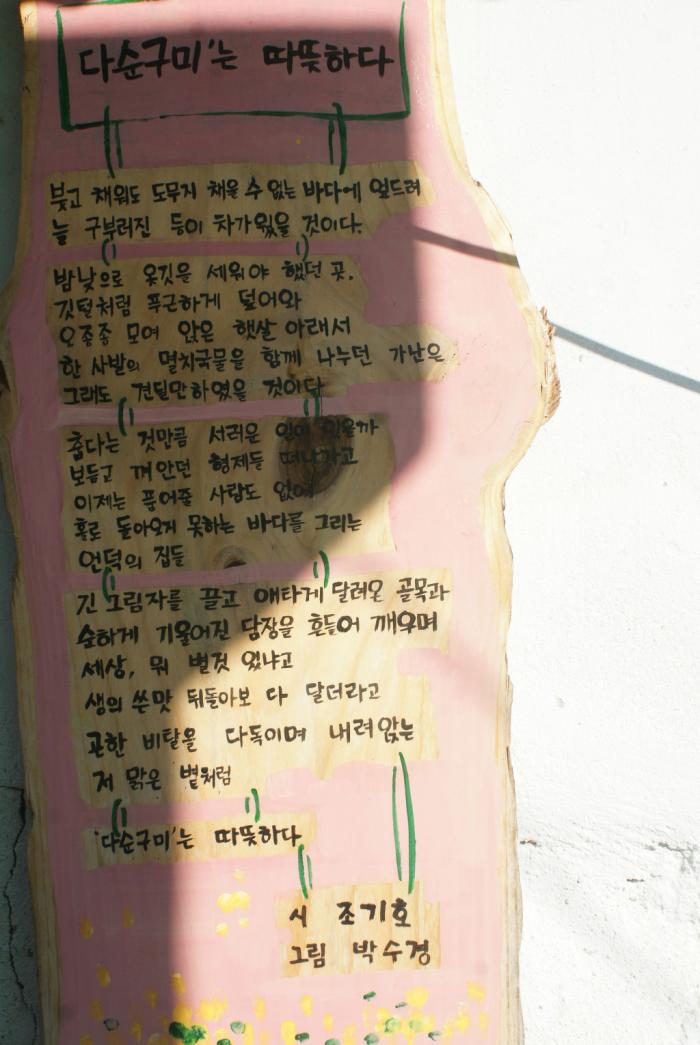 다순구미'는 따뜻하다
붓고 채워도 도무지 채울 수 없는 바다에 엎드려
늘 구부러진 등이 차가웠을 것이다.
밤낮으로 옷깃을 세워야 했던 곳.
깃털처럼 푸근하게 덮어와
오종종 모여 앉은 햇살 아래서
한 사발의 멸치국물을 함께 나누던 가난은
그래도 견딜만하였을 것이다
춥다는 것만큼 서러운 일이 있을까
보듬고 껴안던 형제들 떠나가고
이제는 품어줄 사람도 없어
홀로 돌아오지 못하는 바다를 그리는
언덕의 집들
긴 그림자를 끌고 애타게 달려온 골목과
순하게 기울어진 담장을 흔들어 깨우며
세상, 뭐 별것 있냐고
생의 쓴맛 뒤돌아보 다 달더라고
곤한 비탈을 다독이며 내려앉는
저 맑은 볕처럼
'다순구미'는 따뜻하다
시 조기호
그림 박수경